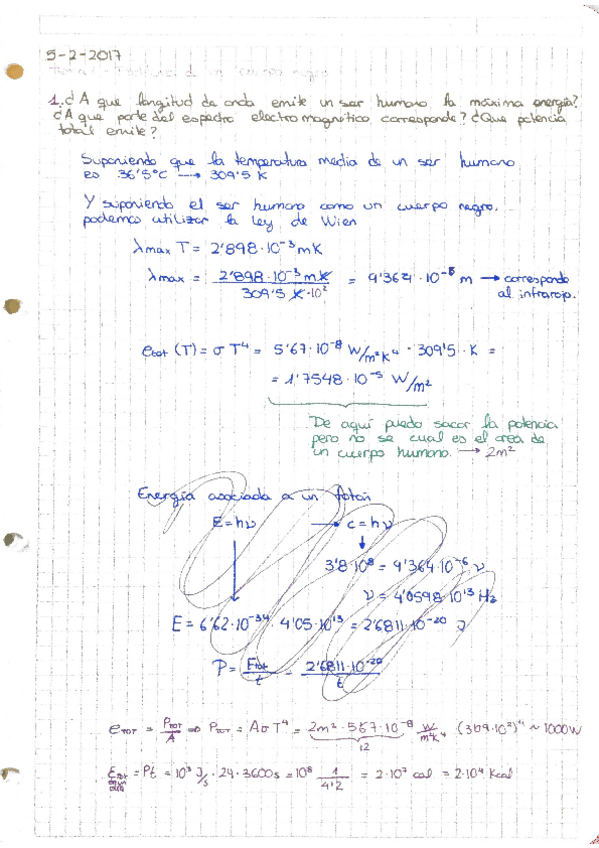 5-2-2017
1. ¿A que longitud de onda emite un ser humano la máxima energía?
¿A que parte del espectro electromagnético corresponde? ¿Que potencia
total emite?
Suponiendo que la temperatura media de un ser humano
es 36'5°C → 309'5 K
Y suponiendo el ser humano como un cuerpo negro.
podemos utilizar la ley de Wien
λmax T = 2'898·10⁻³ mK
λmax = 2'898·10⁻³ mK / 309'5 K·10² = 9'364·10⁻⁶ m → corresponde
al infrarojo.
etot (T) = σ T⁴ = 5'67·10⁻⁸ W/m²K⁴ · 309'5 K =
= 1'7548·10⁻⁵ W/m²
De aquí puedo sacar la potencia
pero no se cual es el area de
un cuerpo humano. → 2m²
Energía asociada a un fotón
E = hν → c = hν
3'8·10⁸ = 9'364·10⁻⁶ ν
ν = 4'0598·10¹³ Hz
E = 6'62·10⁻³⁴ · 4'05·10¹³ = 2'6811·10⁻²⁰ J
P = Etot/t = 2'6811·10⁻²⁰/t
eTOT = PTOT/A ⇒ PTOT = AσT⁴ = 2m²·5'67·10⁻⁸ W/m²K⁴ (3'09·10²)⁴ ~ 1000W
12
= Pt = 10³ J/s · 24·3600s = 10⁸ 1/4'2 = 2·10⁷ cal = 2·10⁴ Kcal